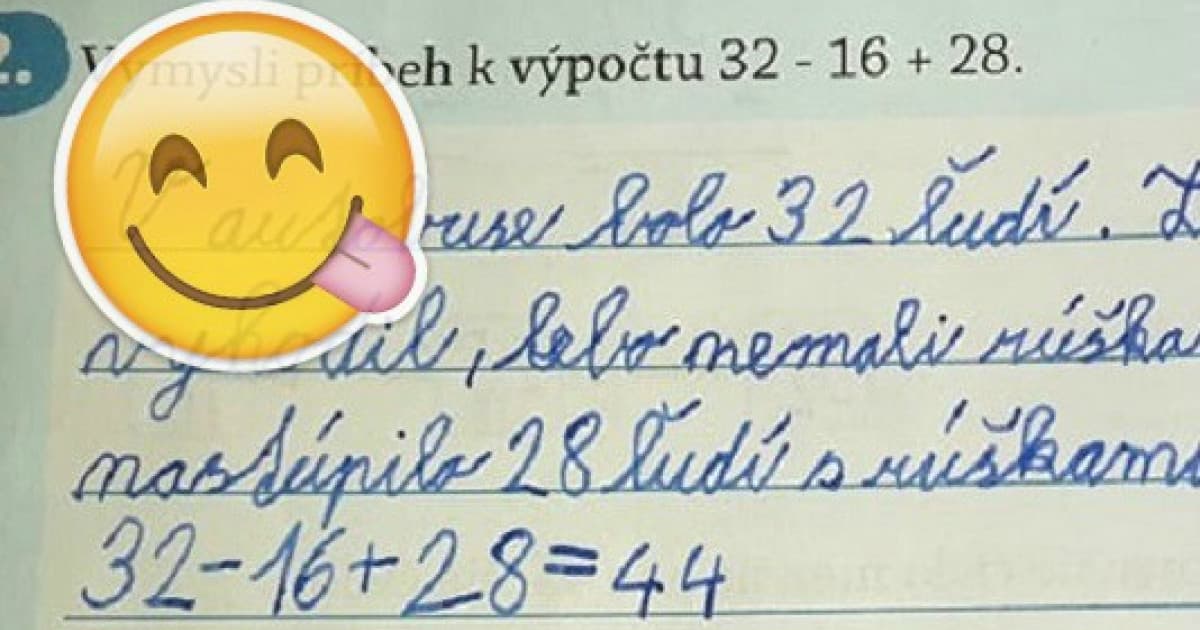 2. Vymysli príbeh k výpočtu 32 - 16 + 28.
V autobuse bolo 32 ľudí.
vyhodil, lebo nemali rúška
nastúpilo 28 ľudí s rúškami
32-16+28=44